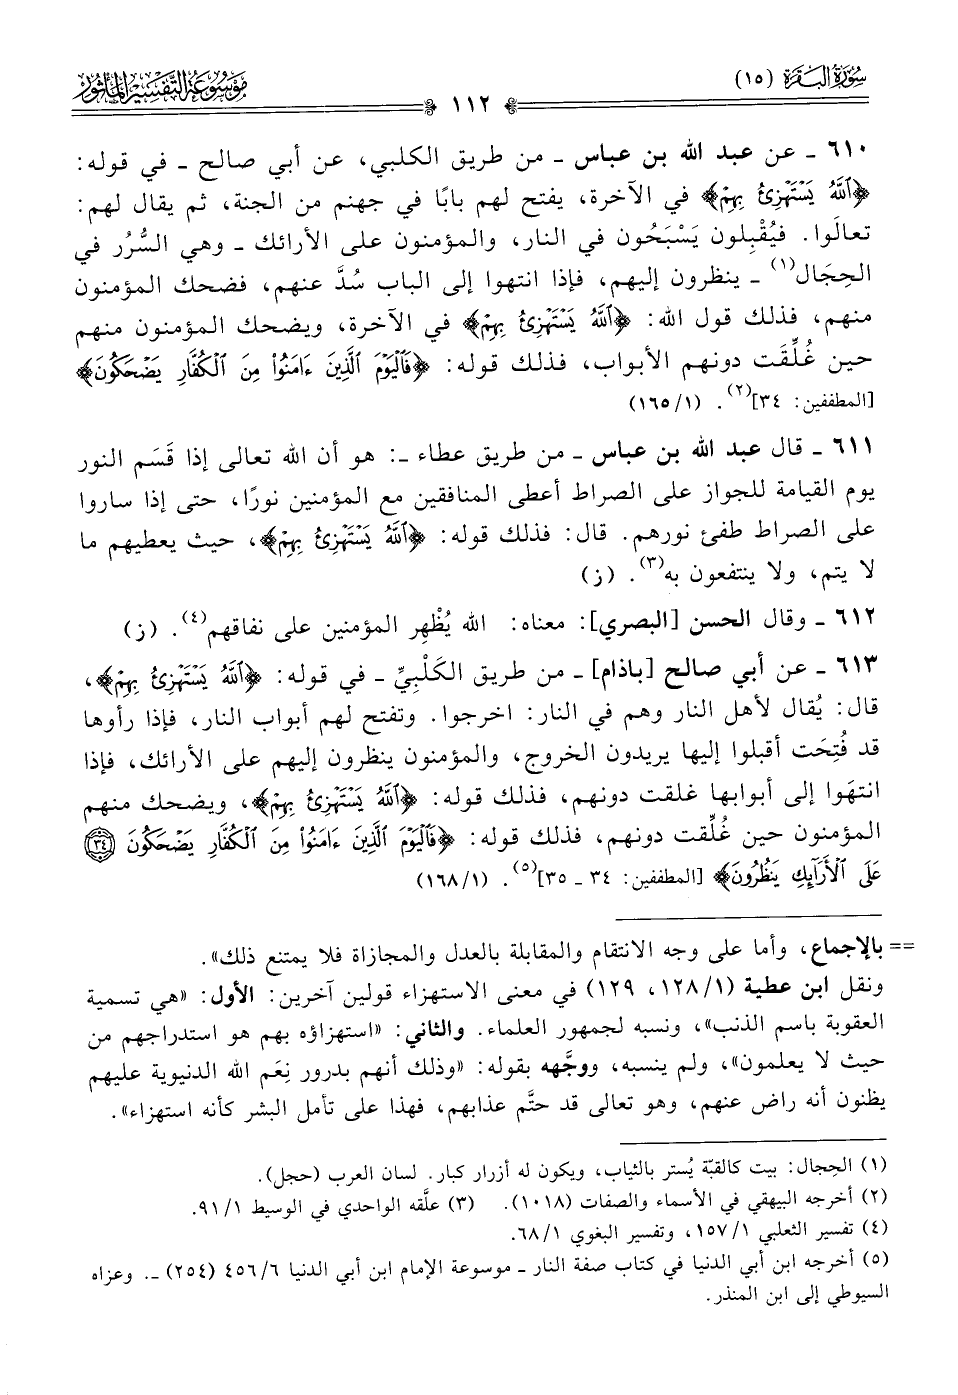 سُورَةُ البَقَرَة (١٥)
١١٢
مَوْسُوعَة التَّفْسِيرِ المَأْثُور
٦١٠ ـ عن عبد الله بن عباس ـ من طريق الكلبي، عن أبي صالح ـ في قوله:
﴿ٱللَّهُ يَسْتَهْزِئُ بِهِمْ﴾ في الآخرة، يفتح لهم بابًا في جهنم من الجنة، ثم يقال لهم:
تعالَوا. فيُقْبِلون يَسْبَحُون في النار، والمؤمنون على الأرائك ـ وهي السُّرُر في
الحِجَال(١) ـ ينظرون إليهم، فإذا انتهوا إلى الباب سُدَّ عنهم، فضحك المؤمنون
منهم، فذلك قول الله: ﴿ٱللَّهُ يَسْتَهْزِئُ بِهِمْ﴾ في الآخرة، ويضحك المؤمنون منهم
حين غُلِّقَت دونهم الأبواب، فذلك قوله: ﴿فَٱلْيَوْمَ ٱلَّذِينَ ءَامَنُوا۟ مِنَ ٱلْكُفَّارِ يَضْحَكُونَ﴾
[المطففين: ٣٤](٢). (١/١٦٥)
٦١١ ـ قال عبد الله بن عباس ـ من طريق عطاء ـ: هو أن الله تعالى إذا قَسَم النور
يوم القيامة للجواز على الصراط أعطى المنافقين مع المؤمنين نورًا، حتى إذا ساروا
على الصراط طفئ نورهم. قال: فذلك قوله: ﴿ٱللَّهُ يَسْتَهْزِئُ بِهِمْ﴾، حيث يعطيهم ما
لا يتم، ولا ينتفعون به(٣). (ز)
٦١٢ ـ وقال الحسن [البصري]: معناه: الله يُظْهِر المؤمنين على نفاقهم(٤). (ز)
٦١٣ ـ عن أبي صالح [باذام] ـ من طريق الكَلْبِيِّ ـ في قوله: ﴿ٱللَّهُ يَسْتَهْزِئُ بِهِمْ﴾،
قال: يُقال لأهل النار وهم في النار: اخرجوا. وتفتح لهم أبواب النار، فإذا رأوها
قد فُتِحَت أقبلوا إليها يريدون الخروج، والمؤمنون ينظرون إليهم على الأرائك، فإذا
انتهَوا إلى أبوابها غلقت دونهم، فذلك قوله: ﴿ٱللَّهُ يَسْتَهْزِئُ بِهِمْ﴾، ويضحك منهم
المؤمنون حين غُلِّقت دونهم، فذلك قوله: ﴿فَٱلْيَوْمَ ٱلَّذِينَ ءَامَنُوا۟ مِنَ ٱلْكُفَّارِ يَضْحَكُونَ ۝٣٤
عَلَى ٱلْأَرَآئِكِ يَنظُرُونَ﴾ [المطففين: ٣٤ ـ ٣٥](٥). (١/١٦٨)
== بالإجماع، وأما على وجه الانتقام والمقابلة بالعدل والمجازاة فلا يمتنع ذلك».
ونقل ابن عطية (١/١٢٨، ١٢٩) في معنى الاستهزاء قولين آخرين: الأول: «هي تسمية
العقوبة باسم الذنب»، ونسبه لجمهور العلماء. والثاني: «استهزاؤه بهم هو استدراجهم من
حيث لا يعلمون»، ولم ينسبه، ووجَّهه بقوله: «وذلك أنهم بدرور نِعَم الله الدنيوية عليهم
يظنون أنه راض عنهم، وهو تعالى قد حتَّم عذابهم، فهذا على تأمل البشر كأنه استهزاء».
(١) الحِجال: بيت كالقبّة يُستر بالثياب، ويكون له أزرار كبار. لسان العرب (حجل).
(٢) أخرجه البيهقي في الأسماء والصفات (١٠١٨). (٣) علَّقه الواحدي في الوسيط ١/ ٩١.
(٤) تفسير الثعلبي ١/ ١٥٧، وتفسير البغوي ١/ ٦٨.
(٥) أخرجه ابن أبي الدنيا في كتاب صفة النار ـ موسوعة الإمام ابن أبي الدنيا ٦/ ٤٥٦ (٢٥٤) ـ. وعزاه
السيوطي إلى ابن المنذر.